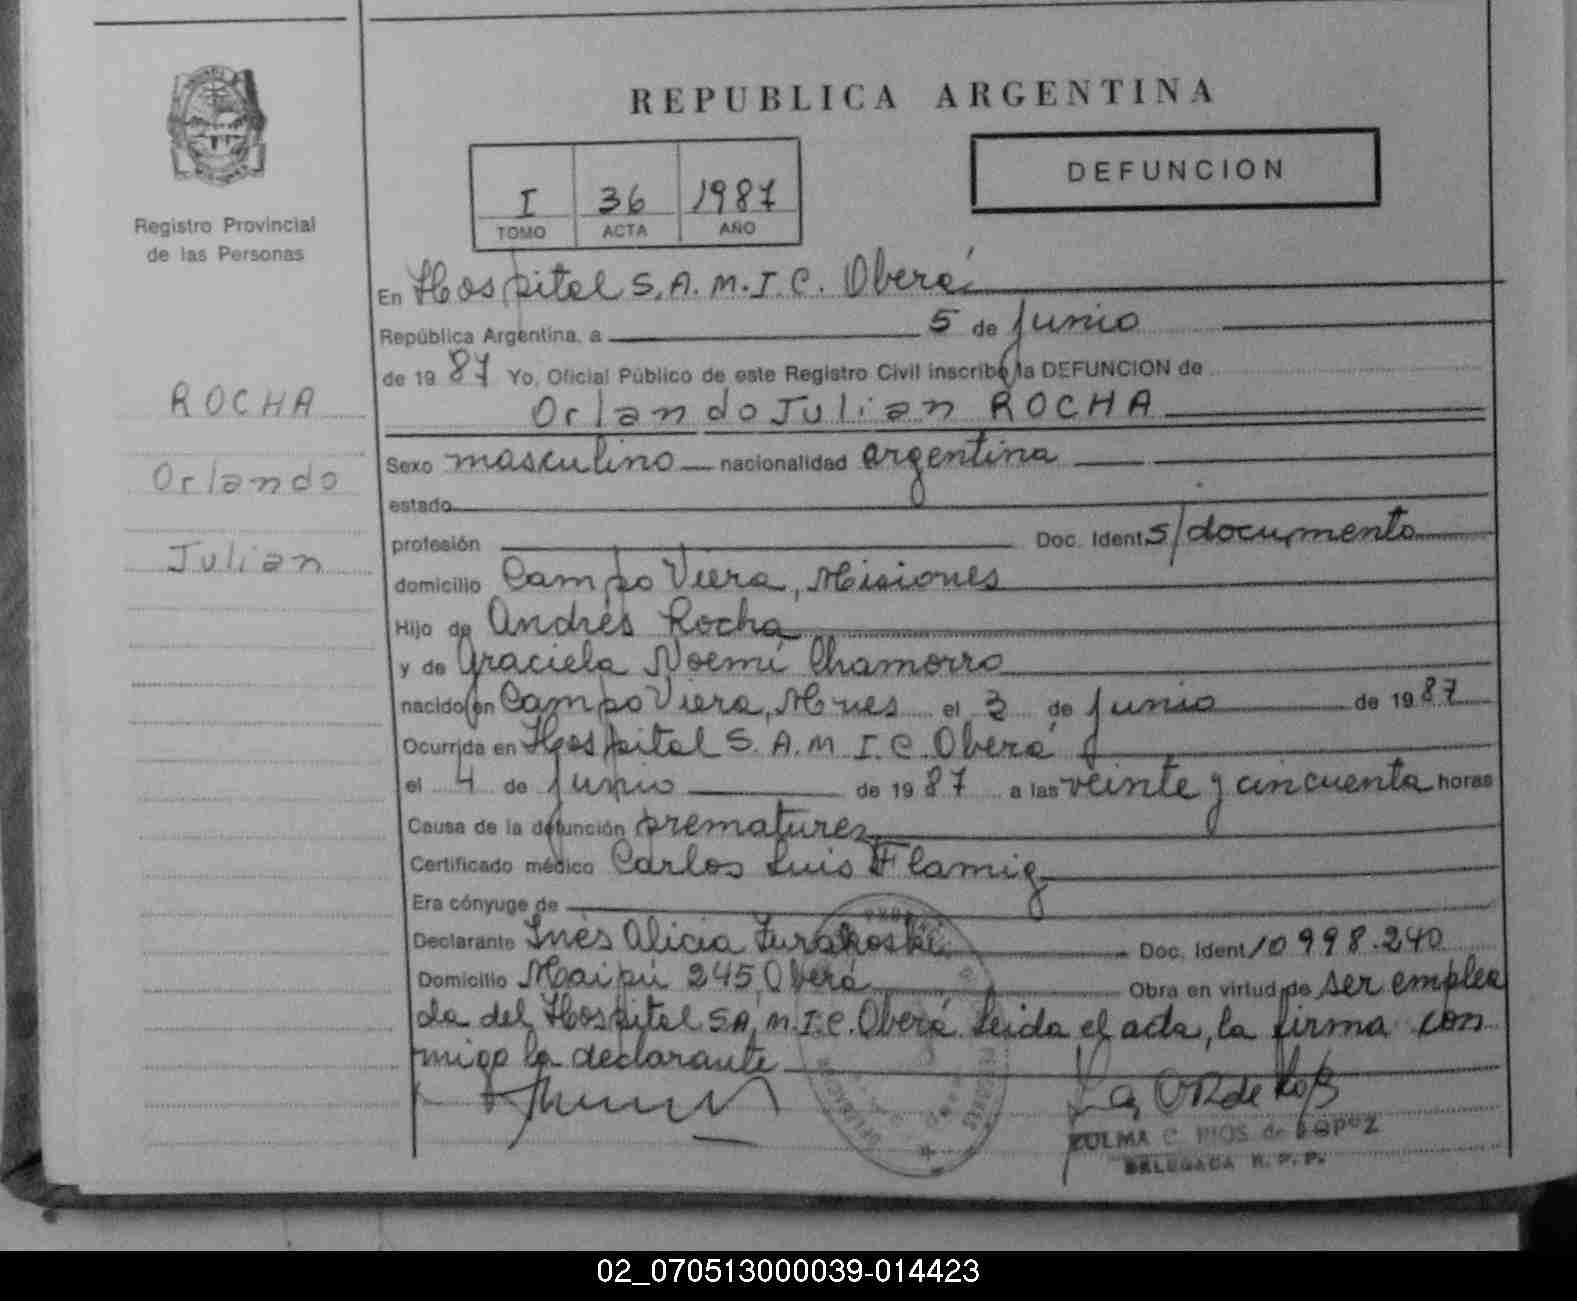 REPUBLICA ARGENTINA
DEFUNCION
I 36 1987
TOMO ACTA AÑO
Registro Provincial
de las Personas
ROCHA
Orlando
Julian
En Hospital S.A.M.I.C. Oberá
República Argentina, a 5 de junio
de 1987 Yo, Oficial Público de este Registro Civil inscribo la DEFUNCION de
Orlando Julian ROCHA
Sexo masculino nacionalidad argentina
estado
profesión Doc. Ident. s/documento
domicilio Campo Viera, Misiones
Hijo de Andrés Rocha
y de Graciela Noemí Chamorro
nacido en Campo Viera, Mnes el 3 de junio de 1987
Ocurrida en Hospital S.A.M.I.C. Oberá
el 4 de junio de 1987 a las veinte y cincuenta horas
Causa de la defunción prematurez
Certificado médico Carlos Luis Flamig
Era cónyuge de
Declarante Inés Alicia Doc. Ident. 10998.240
Domicilio Maipú 245, Oberá Obra en virtud de ser emplea
da del Hospital S.A.M.I.C. Oberá. Leida el acta, la firma con
migo la declarante
ZULMA C. RIOS de LOPEZ
DELEGADA R.P.P.
02_070513000039-014423